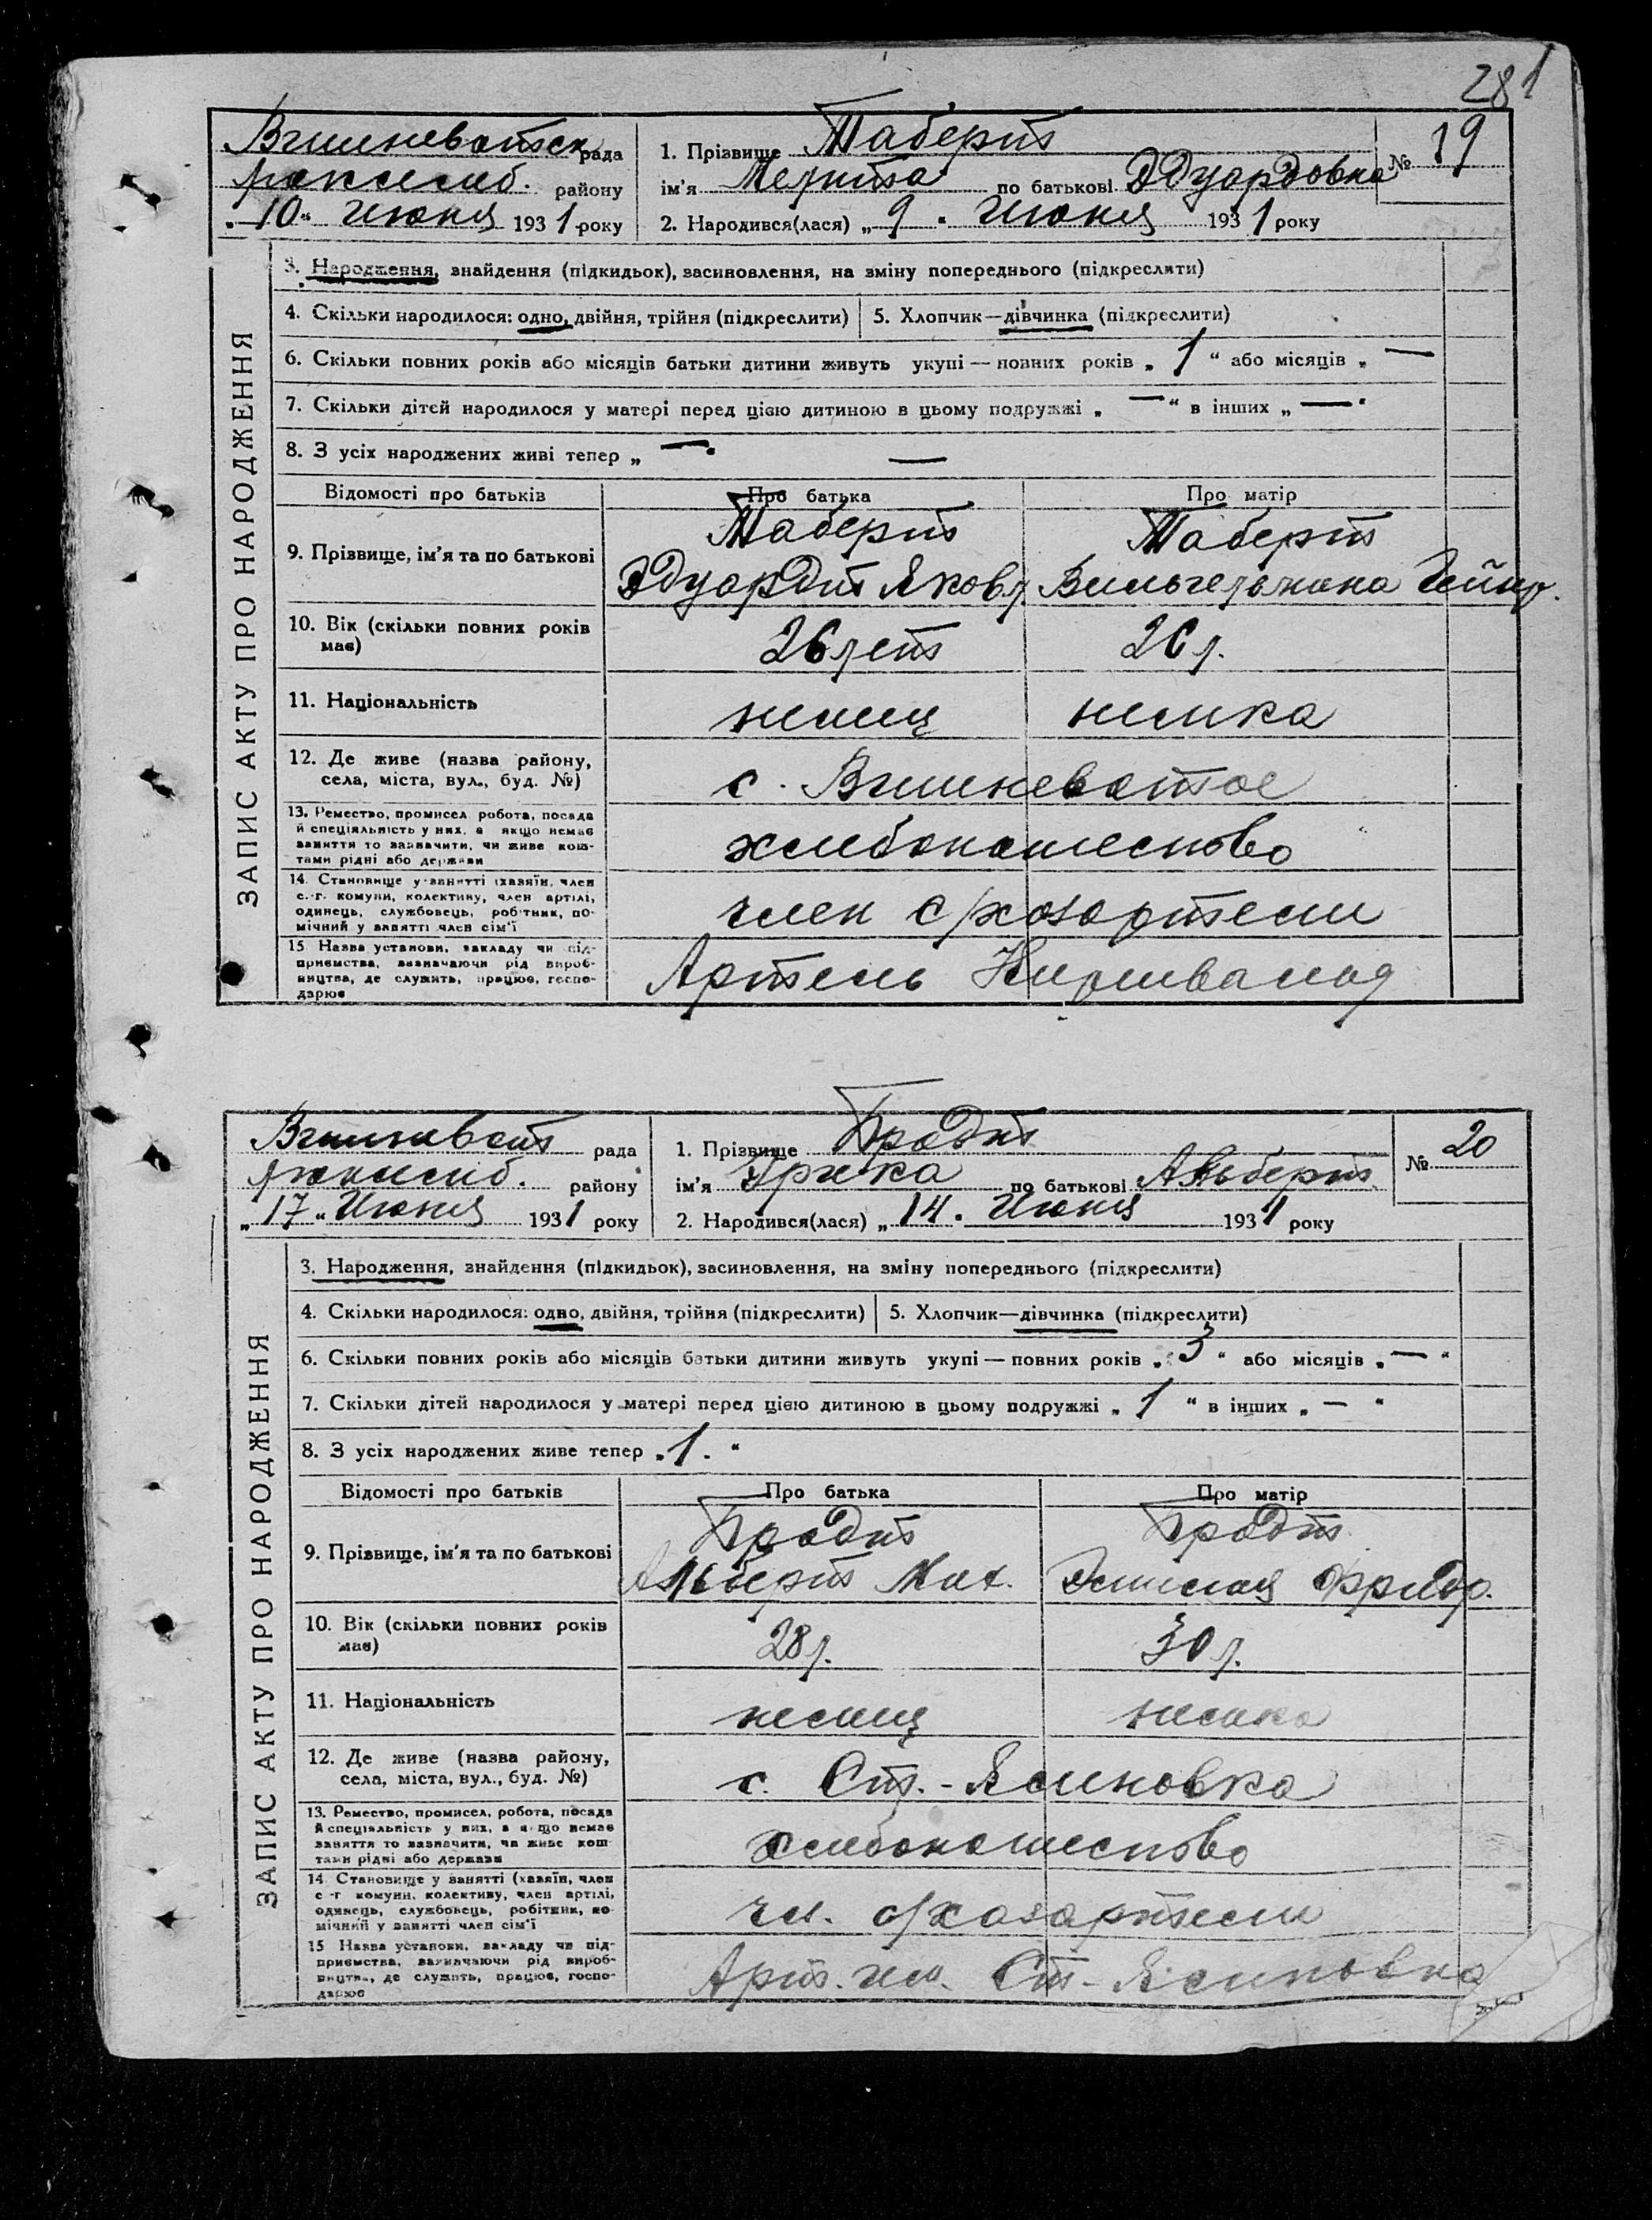 281
Вишневатск рада
району
„10“ Июня 1931 року
1. Прізвище Таберт
ім'я Мелита по батькові Эдуардовна
№ 19
2. Народився(лася) „9“ Июня 1931 року
ЗАПИС АКТУ ПРО НАРОДЖЕННЯ
3. Народження, знайдення (підкидьок), засиновлення, на зміну попереднього (підкреслити)
4. Скільки народилося: одно, двійня, трійня (підкреслити)
5. Хлопчик—дівчинка (підкреслити)
6. Скільки повних років або місяців батьки дитини живуть укупі — повних років „1“ або місяців „—
7. Скільки дітей народилося у матері перед цією дитиною в цьому подружжі „—“ в інших „—“
8. З усіх народжених живі тепер „—“ —
Відомості про батьків
Про батька
Про матір
9. Прізвище, ім'я та по батькові
Таберт
Эдуардт Яковл.
Таберт
Вильгельмина Гейнр.
10. Вік (скільки повних років
має)
26 лет
26 л.
11. Національність
немец
немка
12. Де живе (назва району,
села, міста, вул., буд. №)
с. Вишневатое
13. Ремество, промисел робота, посада
й спеціяльність у них, а якщо немає
заняття то зазначити, чи живе кош-
тами рідні або держави
хлебопашество
14. Становище у занятті (хазяїн, член
с.-г. комуни, колективу, член артілі,
одинець, службовець, робітник, по-
мічний у занятті член сім'ї
член с/хозартели
15 Назва установи, закладу чи під-
приємства, зазначаючи рід вироб-
ництва, де служить, працює, госпо-
дарює
Артель Киршвальд
Вишневат рада
району
„17“ Июня 1931 року
1. Прізвище Бродт
ім'я Эрика по батькові Альберт.
№ 20
2. Народився(лася) „14. Июня 1931 року
ЗАПИС АКТУ ПРО НАРОДЖЕННЯ
3. Народження, знайдення (підкидьок), засиновлення, на зміну попереднього (підкреслити)
4. Скільки народилося: одно, двійня, трійня (підкреслити)
5. Хлопчик—дівчинка (підкреслити)
6. Скільки повних років або місяців батьки дитини живуть укупі — повних років „3“ або місяців „—“
7. Скільки дітей народилося у матері перед цією дитиною в цьому подружжі „1“ в інших „—“
8. З усіх народжених живе тепер „1.“
Відомості про батьків
Про батька
Про матір
9. Прізвище, ім'я та по батькові
Бродт
Альберт Мих.
Бродт
Эмилия Фридр.
10. Вік (скільки повних років
має)
28 л.
30 л.
11. Національність
немец
немка
12. Де живе (назва району,
села, міста, вул., буд. №)
с. Ст.-Ясиновка
13. Ремество, промисел, робота, посада
й спеціяльність у них, а якщо немає
заняття то зазначити, чи живе кош-
тами рідні або держави
хлебопашество
14 Становище у занятті (хазяїн, член
с-г комуни, колективу, член артілі,
одинець, службовець, робітник, по-
мічний у занятті член сім'ї
чл. с/хозартели
15 Назва установи, закладу чи під-
приємства, зазначаючи рід вироб-
ництва, де служить, працює, госпо-
дарює
Арт. им. Ст-Ясиновка